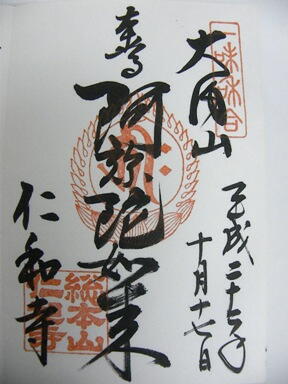 一味和合
平成二十七年
十月十七日
大内山
本尊
阿弥陀如来
総本山
仁和寺
仁和寺